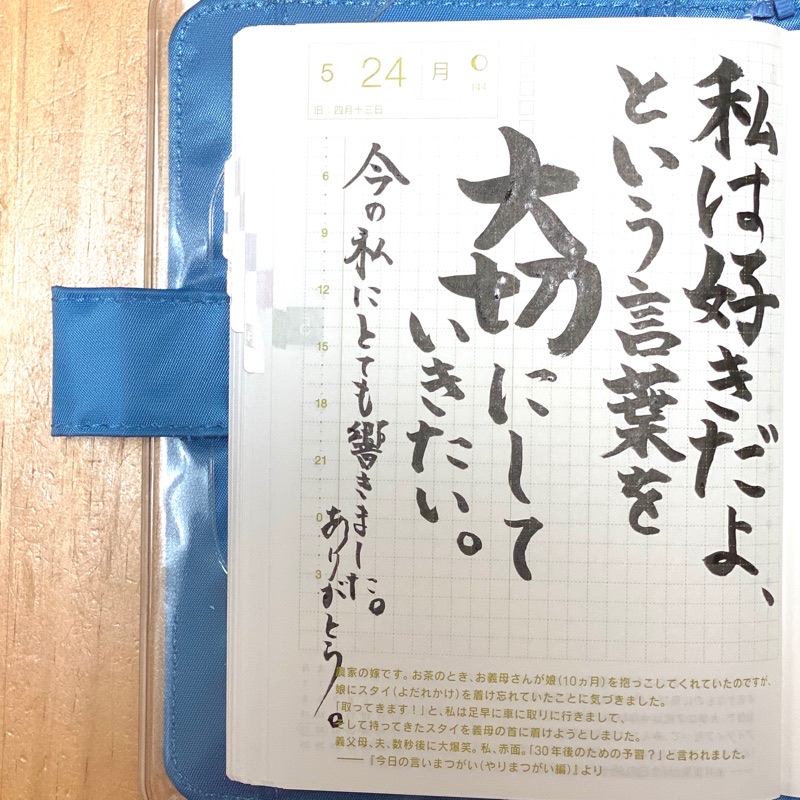 5 24 月
144
旧:四月十三日
私は好きだよ、
という言葉を
大切にして
いきたい。
今の私にとても響きました。
ありがとう。
6
9
12
15
18
21
0
3
農家の嫁です。お茶のとき、お義母さんが娘(10ヵ月)を抱っこしてくれていたのですが、
娘にスタイ(よだれかけ)を着け忘れていたことに気づきました。
「取ってきます!」と、私は足早に車に取りに行きまして、
そして持ってきたスタイを義母の首に着けようとしました。
義父母、夫、数秒後に大爆笑。私、赤面。「30年後のための予習?」と言われました。
——『今日の言いまつがい(やりまつがい編)』より